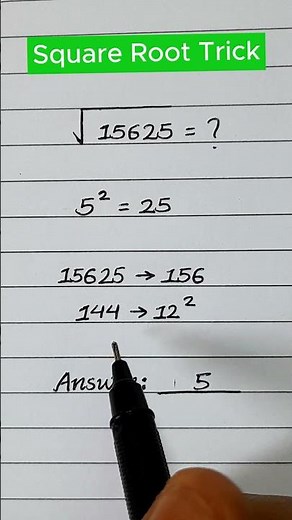 Square Root Trick
√15625 = ?
5² = 25
15625 → 156
144 → 12²
Answer: 5